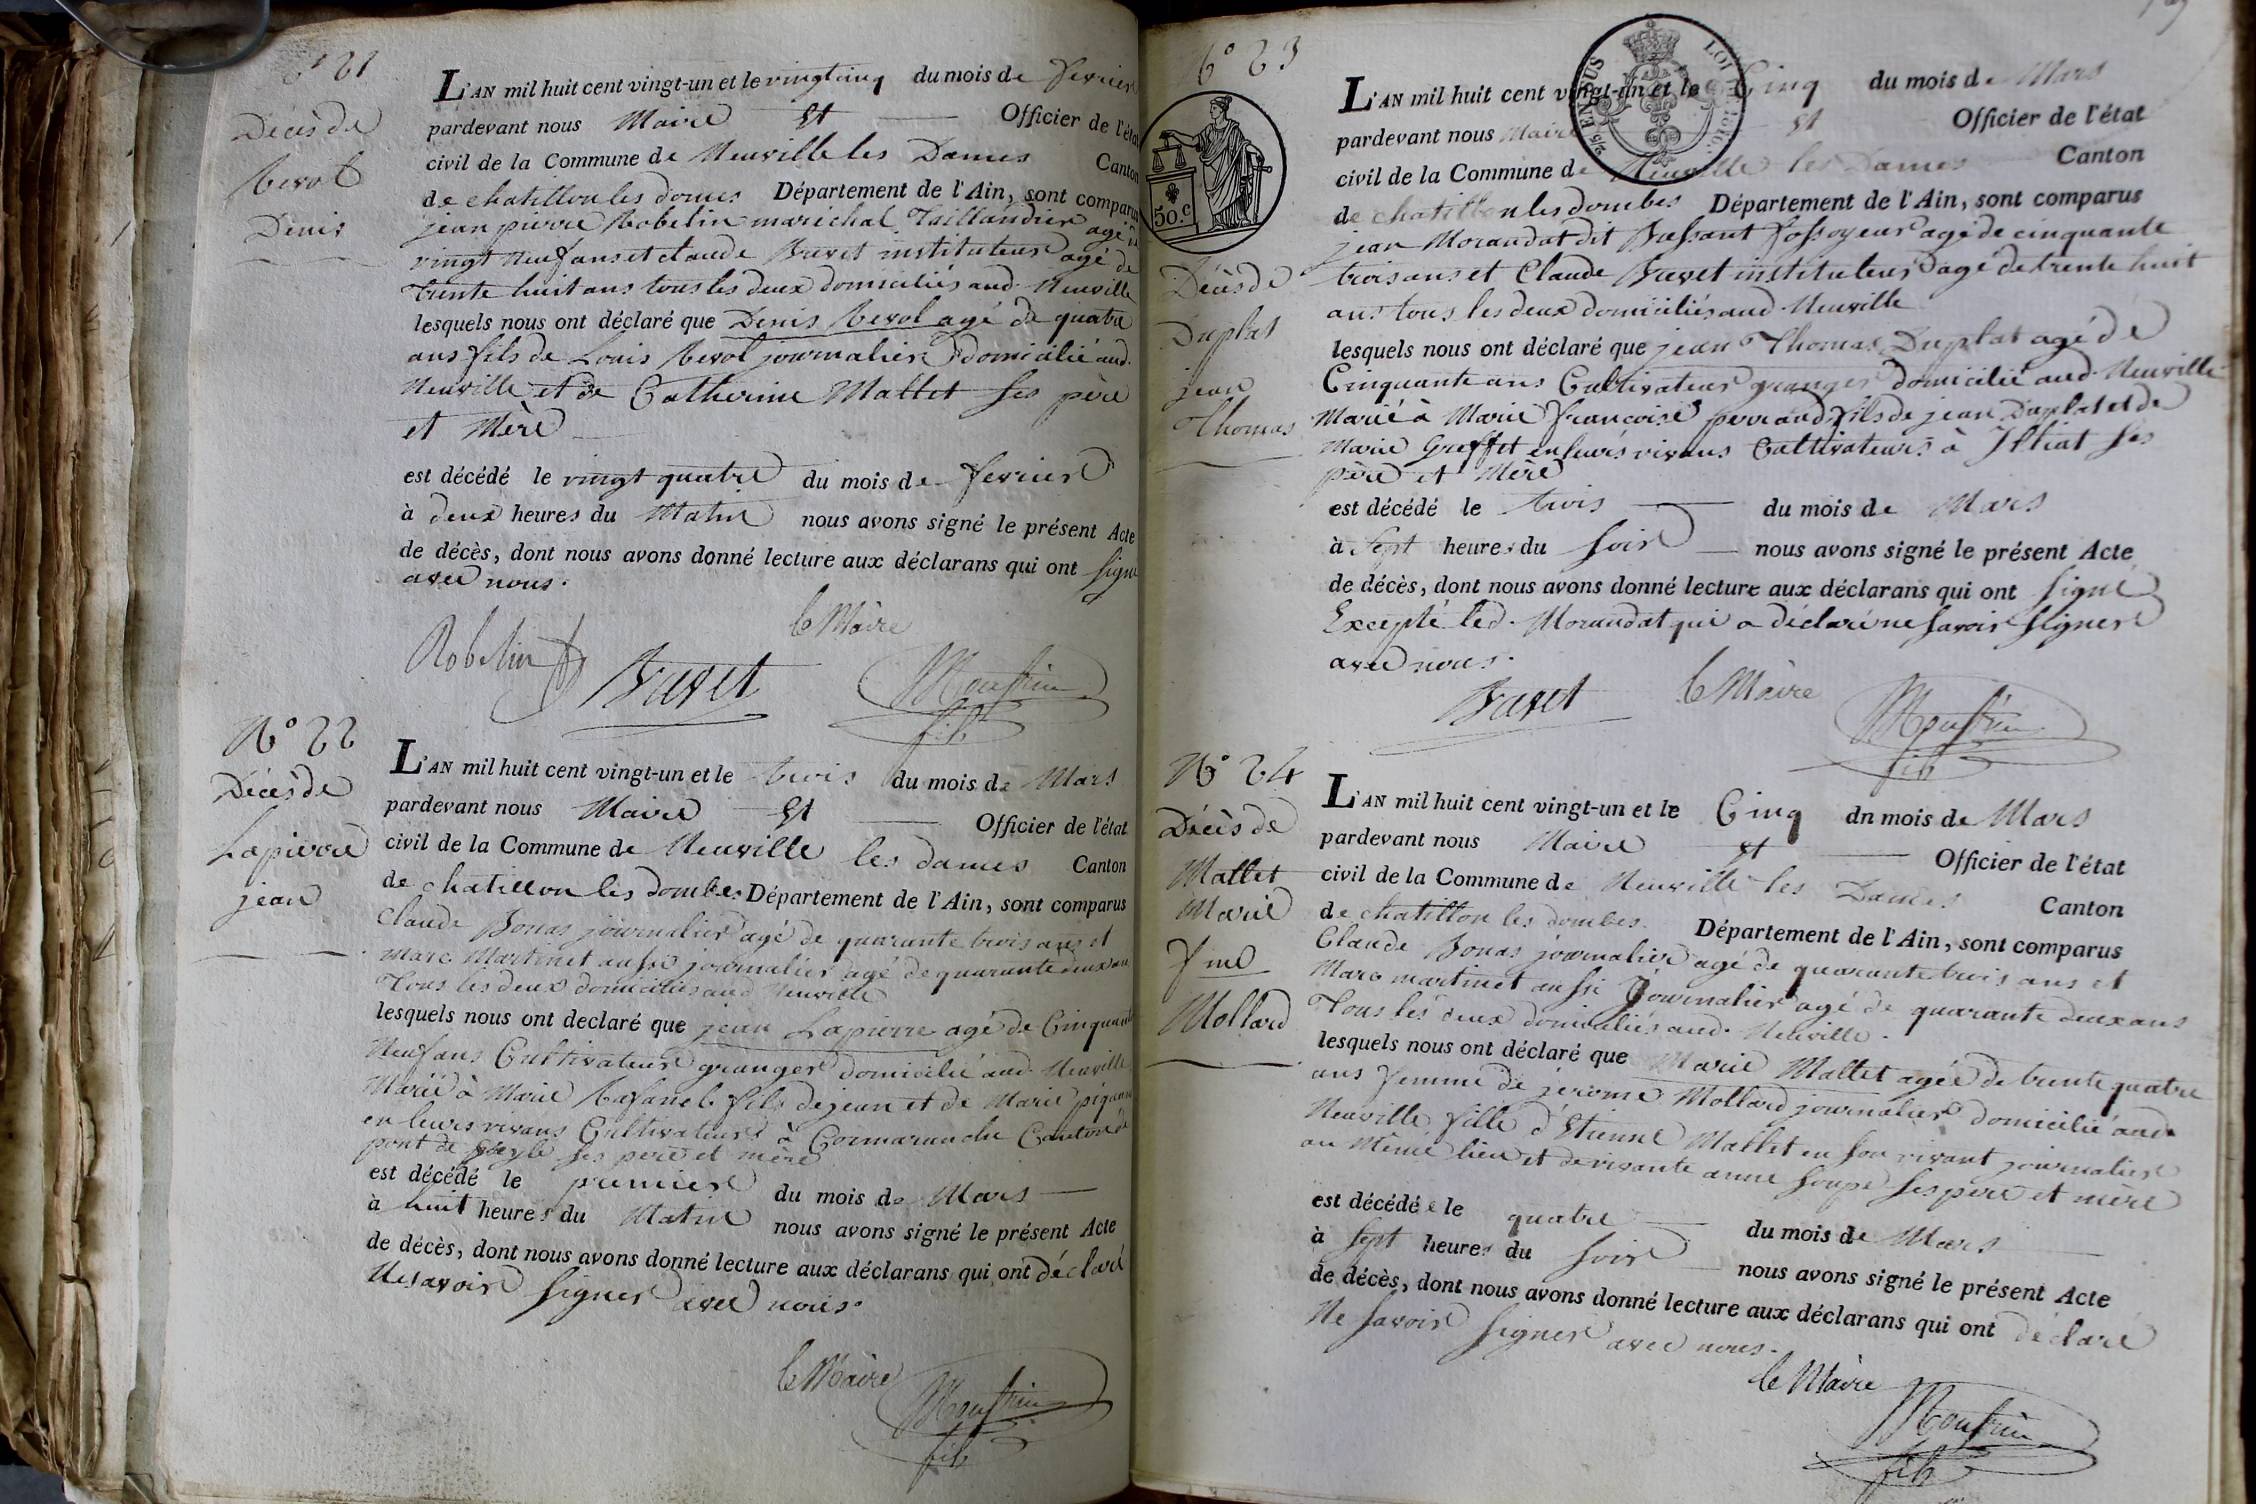 N° 21
Décès de
Revol
Denis
L'AN mil huit cent vingt-un et le vingt cinq du mois de fevrier
pardevant nous Maire Et Officier de l'état
civil de la Commune de Neuville les Dames Canton
de chatillon les domes Département de l'Ain, sont comparus
jean pierre Robelin maréchal Taillandier agé de
vingt neuf ans et claude Buvet instituteur agé de
trente huit ans tous les deux domiciliés aud. Neuville
lesquels nous ont déclaré que Denis Revol agé de quatre
ans fils de Louis Revol journalier domicilié aud.
Neuville et de Catherine Mallet ses père
et Mère
est décédé le vingt quatre du mois de fevrier
à deux heures du Matin nous avons signé le présent Acte
de décès, dont nous avons donné lecture aux déclarans qui ont signé
avec nous.
le Maire
Robelin Buvet
fils
N° 22
Décès de
Lapierre
jean
L'AN mil huit cent vingt-un et le trois du mois de Mars
pardevant nous Maire Et Officier de l'état
civil de la Commune de Neuville les Dames Canton
de chatillon les dombes Département de l'Ain, sont comparus
Claude Bonas journalier agé de quarante trois ans et
Marc Martinet aussi journalier agé de quarante deux ans
Tous les deux domiciliés aud Neuville
lesquels nous ont declaré que jean Lapierre agé de Cinquante
Neuf ans Cultivateur granger domicilié aud. Neuville
Marié à Marie fils de jean et de Marie
en leurs vivans Cultivateurs à Cormaranche Canton de
pont de veyle ses père et mère
est décédé le premier du mois de Mars
à huit heures du Matin nous avons signé le présent Acte
de décès, dont nous avons donné lecture aux déclarans qui ont déclaré
Ne savoir signer avec nous.
le Maire
fils
N° 23
50.c
Décès de
Duplat
jean
Thomas
L'AN mil huit cent vingt-un et le Cinq du mois de Mars
pardevant nous Maire Et Officier de l'état
civil de la Commune de Neuville les Dames Canton
de chatillon les dombes Département de l'Ain, sont comparus
jean Morandat dit Bressant fossoyeur agé de cinquante
trois ans et Claude Buvet instituteur agé de trente huit
ans tous les deux domiciliés aud. Neuville
lesquels nous ont déclaré que jean Thomas Duplat agé de
Cinquante ans Cultivateur granger domicilié aud. Neuville
Marié à Marie françoise perraud fils de jean Duplat et de
Marie Greffet en leurs vivans Cultivateurs à Illiat ses
père et Mère
est décédé le trois du mois de Mars
à Sept heures du soir nous avons signé le présent Acte
de décès, dont nous avons donné lecture aux déclarans qui ont signé
Excepté led. Morandat qui a déclaré ne savoir signer
avec nous.
Buvet le Maire
fils
N° 24
Décès de
Mallet
Marie
fme
Mollard
L'AN mil huit cent vingt-un et le Cinq dn mois de Mars
pardevant nous Maire et Officier de l'état
civil de la Commune de Neuville les Dames Canton
de chatillon les dombes. Département de l'Ain, sont comparus
Claude Bonas journalier agé de quarante trois ans et
Marc martinet aussi Journalier agé de quarante deux ans
Tous les deux domiciliés aud. Neuville.
lesquels nous ont déclaré que Marie Mallet agée de trente quatre
ans femme de jerome Mollard journalier domicilié aud.
Neuville fille d'Etienne Mallet en son vivant journalier
au Même lieu et de vivante anne Soupe ses pere et mère
est décédée le quatre du mois de Mars
à Sept heures du soir nous avons signé le présent Acte
de décès, dont nous avons donné lecture aux déclarans qui ont déclaré
Ne savoir signer avec nous.
le Maire
fils